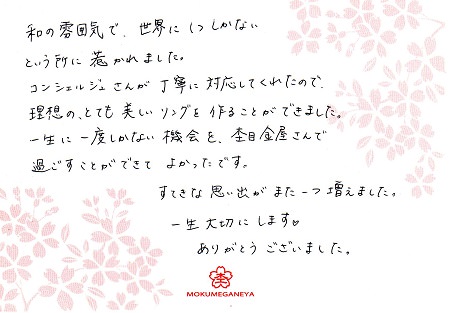 和の雰囲気で、世界に1つしかない
という所に惹かれました。
コンシェルジュさんが丁寧に対応してくれたので、
理想の、とても美しいリングを作ることができました。
一生に一度しかない機会を、杢目金屋さんで
過ごすことができてよかったです。
すてきな思い出がまた一つ増えました。
一生大切にします♡
ありがとうございました。
杢
MOKUMEGANEYA